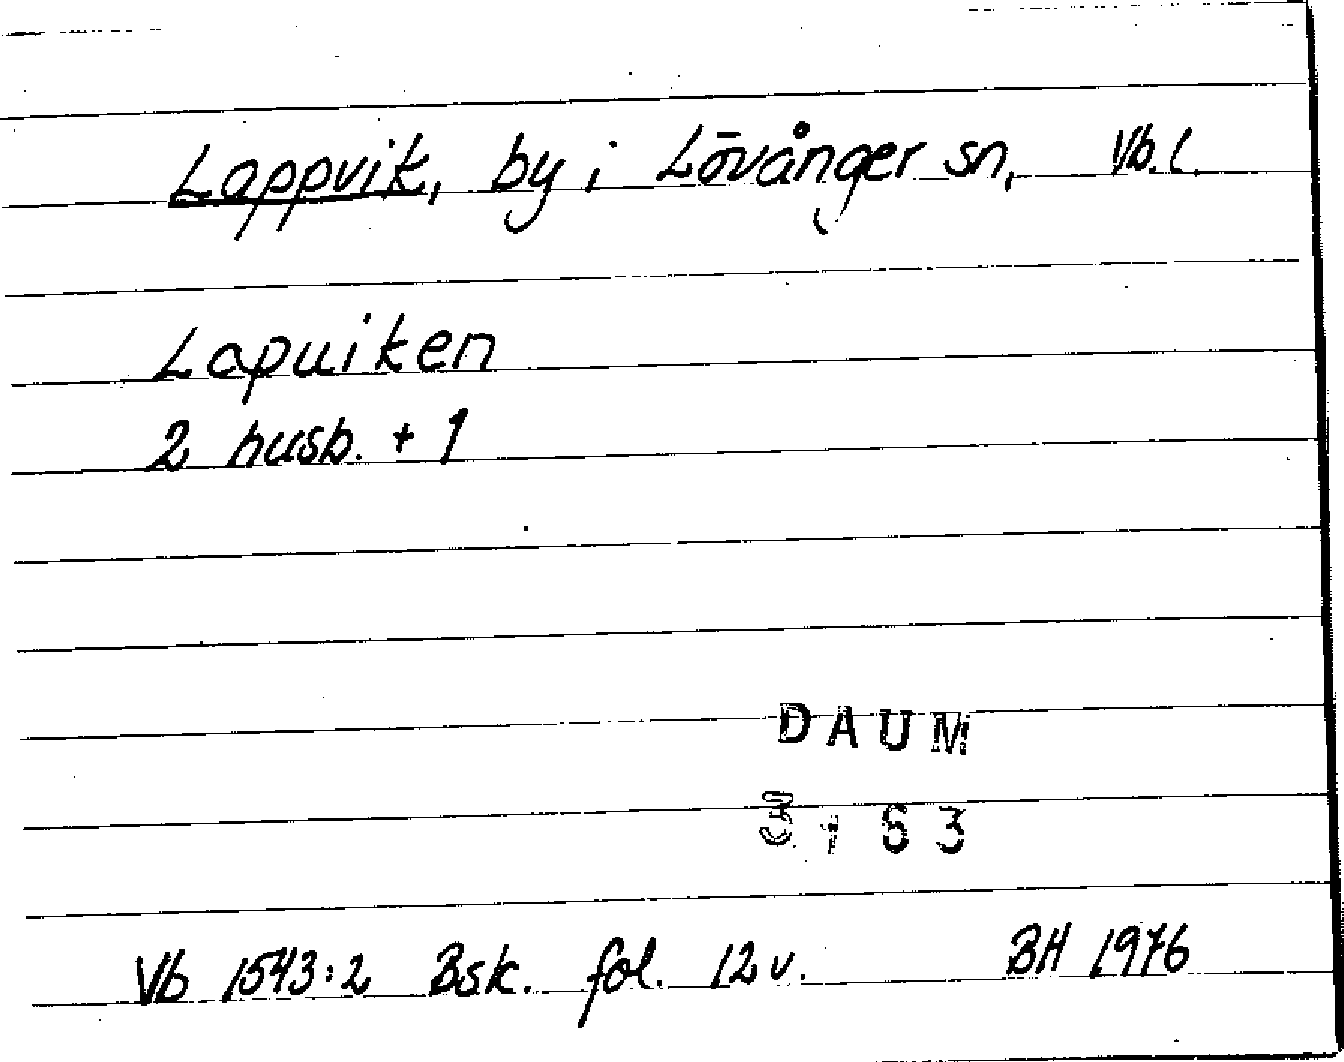 Lappvik, by i Lövånger sn, Vb.l.
Lapuiken
2 husb. + 1
DAUM
3153
Vb 1543:2 Bsk. fol. 12 v. BH 1976